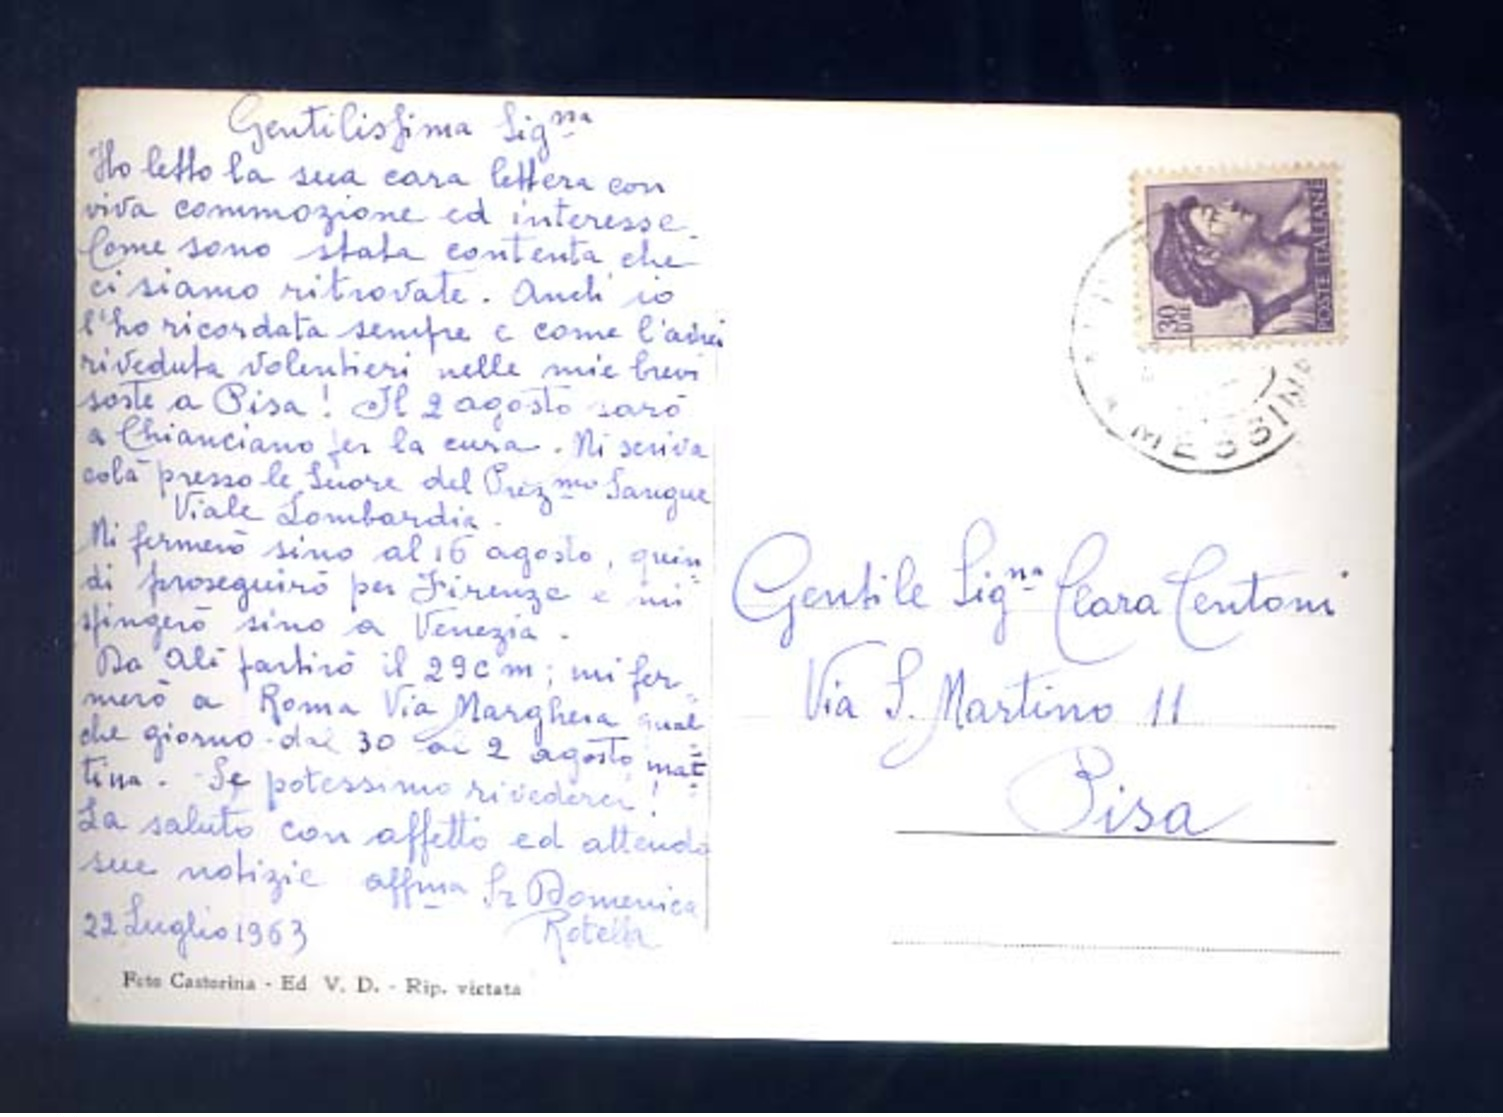 Gentilissima Sig.na
Ho letto la sua cara lettera con
viva commozione ed interesse.
Come sono stata contenta che
ci siamo ritrovate. Anch'io
l'ho ricordata sempre e come l'avrei
riveduta volentieri nelle mie brevi
soste a Pisa! Il 2 agosto sarò
a Chianciano per la cura. Mi scriva
colà presso le Suore del Prez.mo Sangue
Viale Lombardia.
Mi fermerò sino al 16 agosto, quin
di proseguirò per Firenze e mi
spingerò sino a Venezia.
Da Alì partirò il 29 c m; mi fer-
merò a Roma Via Marghera qual
che giorno dal 30 al 2 agosto mat
tina. Se potessimo rivederci!
La saluto con affetto ed attendo
sue notizie affma Sr Domenica
Rotella
22 Luglio 1963
Foto Castorina - Ed V. D. - Rip. vietata
30 LIRE
POSTE ITALIANE
MESSINA
Gentile Sig.na Clara Centoni
Via S. Martino 11
Pisa